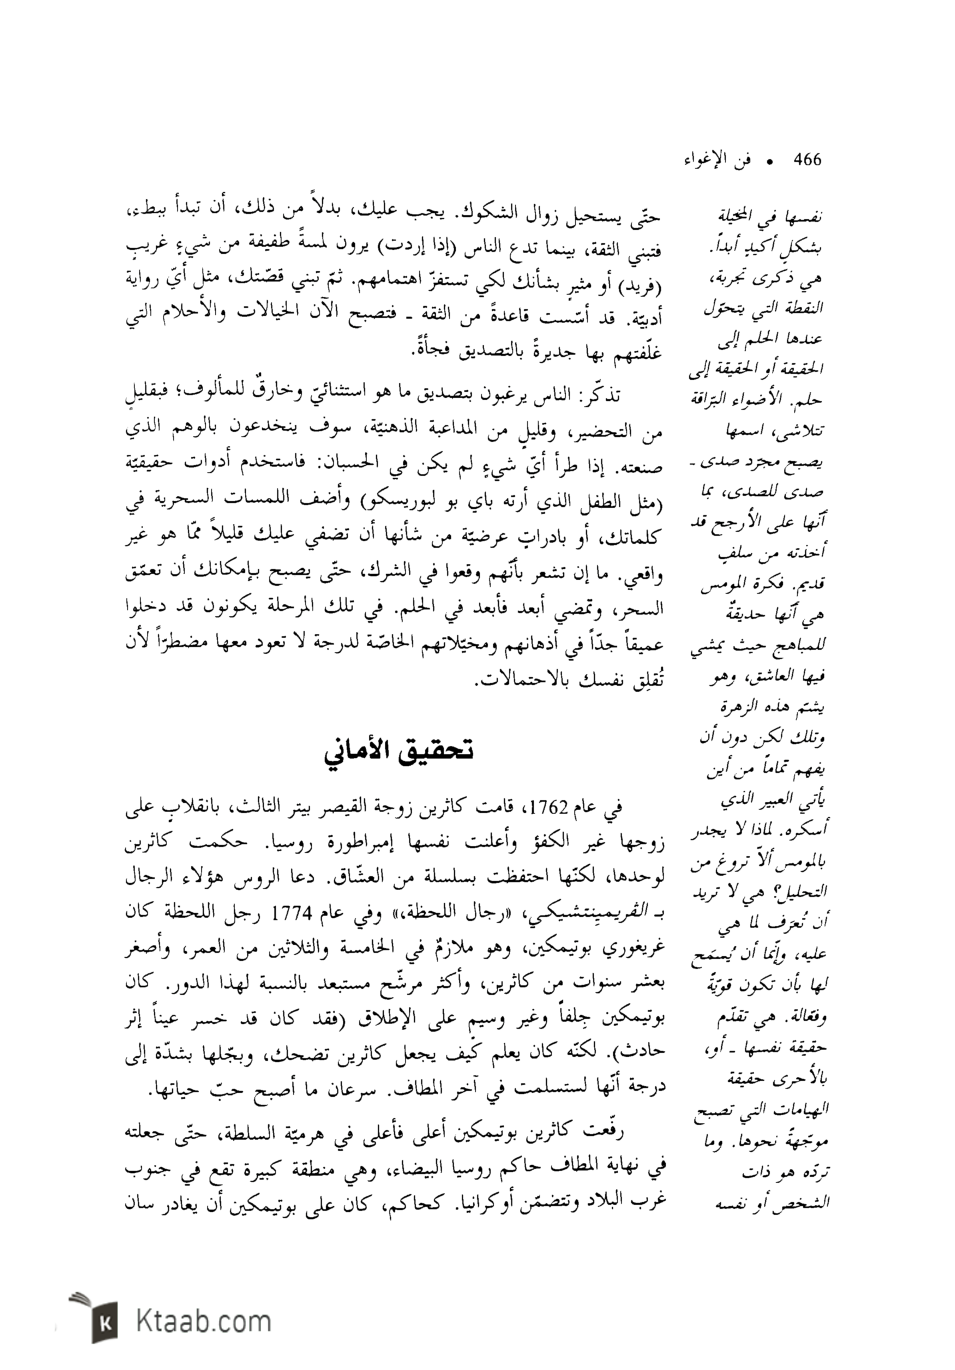 466 • فن الإغواء
نفسها في المخيلة
بشكلٍ أكيدٍ أبداً.
هي ذكرى تجربة،
النقطة التي يتحوّل
عندها الحلم إلى
الحقيقة أو الحقيقة إلى
حلم. الأضواء البرّاقة
تتلاشى، اسمها
يصبح مجرّد صدى ـ
صدى للصدى، بما
أنّها على الأرجح قد
أخذته من سلفٍ
قديم. فكرة المومس
هي أنّها حديقةٌ
للمباهج حيث يمشي
فيها العاشق، وهو
يشتم هذه الزهرة
وتلك لكن دون أن
يفهم تماماً من أين
يأتي العبير الذي
أسكره. لماذا لا يجدر
بالمومس ألاّ تروغ من
التحليل؟ هي لا تريد
أن تُعرَف لما هي
عليه، وإنّما أن يُسمَح
لها بأن تكون قويّةً
وفعّالة. هي تقدّم
حقيقة نفسها ـ أو،
بالأحرى حقيقة
الهيامات التي تصبح
موجّهةً نحوها. وما
تردّه هو ذات
الشخص أو نفسه
حتّى يستحيل زوال الشكوك. يجب عليك، بدلاً من ذلك، أن تبدأ ببطء،
فتبني الثقة، بينما تدع الناس (إذا إردت) يرون لمسةً طفيفة من شيءٍ غريبٍ
(فريد) أو مثيرٍ بشأنك لكي تستفزّ اهتمامهم. ثمّ تبني قصّتك، مثل أيّ رواية
أدبيّة. قد أسّست قاعدةً من الثقة ـ فتصبح الآن الخيالات والأحلام التي
غلّفتهم بها جديرةً بالتصديق فجأةً.
تذكّر: الناس يرغبون بتصديق ما هو استثنائيّ وخارقٌ للمألوف؛ فبقليلٍ
من التحضير، وقليلٍ من المداعبة الذهنيّة، سوف ينخدعون بالوهم الذي
صنعته. إذا طرأ أيّ شيءٍ لم يكن في الحسبان: فاستخدم أدوات حقيقيّة
(مثل الطفل الذي أرته باي بو لبوريسكو) وأضف اللمسات السحرية في
كلماتك، أو بادراتٍ عرضيّة من شأنها أن تضفي عليك قليلاً ممّا هو غير
واقعي. ما إن تشعر بأنّهم وقعوا في الشرك، حتّى يصبح بإمكانك أن تعمّق
السحر، وتمضي أبعد فأبعد في الحلم. في تلك المرحلة يكونون قد دخلوا
عميقاً جدّاً في أذهانهم ومخيّلاتهم الخاصّة لدرجة لا تعود معها مضطرّاً لأن
تُقلِق نفسك بالاحتمالات.
تحقيق الأماني
في عام 1762، قامت كاثرين زوجة القيصر بيتر الثالث، بانقلابٍ على
زوجها غير الكفؤ وأعلنت نفسها إمبراطورة روسيا. حكمت كاثرين
لوحدها، لكنّها احتفظت بسلسلة من العشّاق. دعا الروس هؤلاء الرجال
بـ الڤريمينتشيكي، «رجال اللحظة،» وفي عام 1774 رجل اللحظة كان
غريغوري بوتيمكين، وهو ملازمٌ في الخامسة والثلاثين من العمر، وأصغر
بعشر سنوات من كاثرين، وأكثر مرشّح مستبعد بالنسبة لهذا الدور. كان
بوتيمكين جِلفاً وغير وسيم على الإطلاق (فقد كان قد خسر عيناً إثر
حادث). لكنّه كان يعلم كيف يجعل كاثرين تضحك، وبجّلها بشدّة إلى
درجة أنّها لستسلمت في آخر المطاف. سرعان ما أصبح حبّ حياتها.
رفّعت كاثرين بوتيمكين أعلى فأعلى في هرميّة السلطة، حتّى جعلته
في نهاية المطاف حاكم روسيا البيضاء، وهي منطقة كبيرة تقع في جنوب
غرب البلاد وتتضمّن أوكرانيا. كحاكم، كان على بوتيمكين أن يغادر سان
Ktaab.com